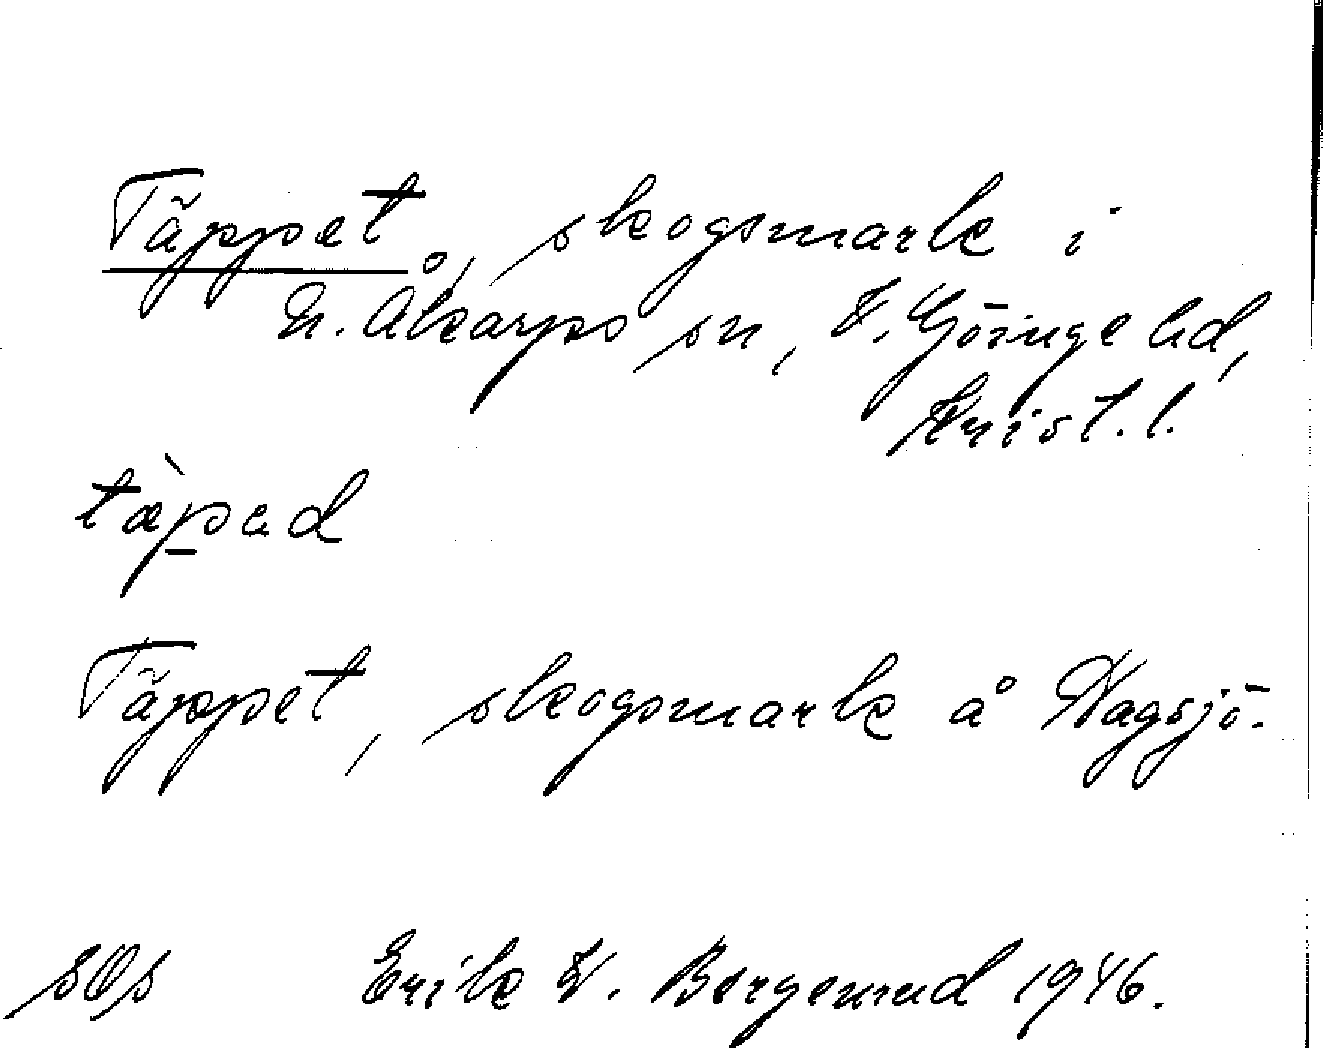 Täppet, skogsmark i
N. Åkarps sn, V. Göinge hd,
Krist. l.
tæ̀pəd
Täppet, skogsmark å Nagsjö.
Erik W. Bergenrud 1946.